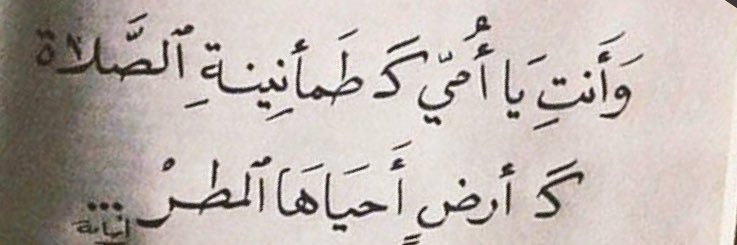 وَأَنتِ يَا أُمّي كَـ طَمأنِينةِ ٱلصَّلاة
كَـ أرضٍ أَحيَاهَا ٱلمطرْ ...